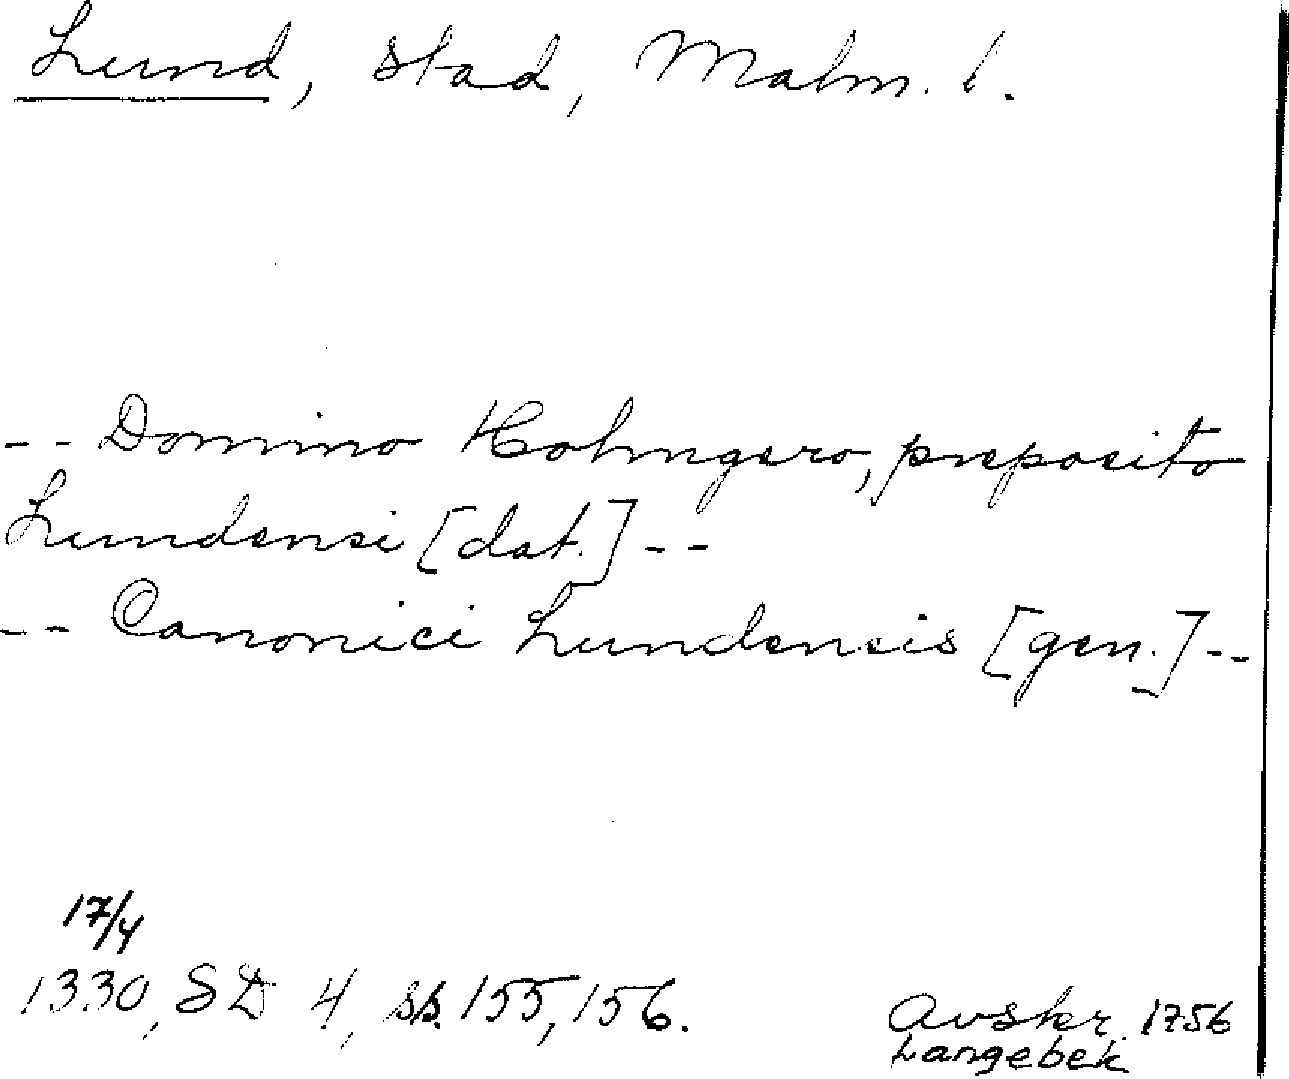 Lund, stad, Malm. l.
-- Domino Holmgero, preposito
Lundensi [dat.] --
-- Canonici Lundensis [gen.] --
17/4
1330, SD 4, ss. 155, 156.
Avskr. 1756
Langebek